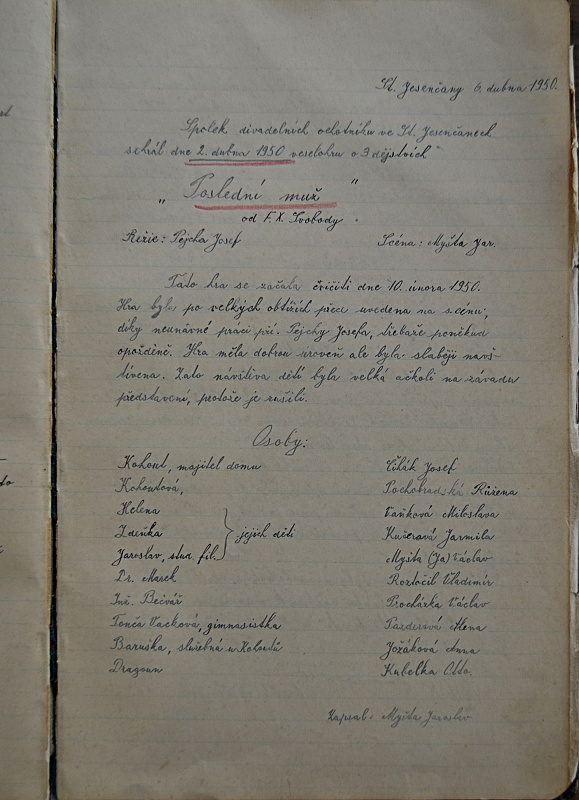 St. Jesenčany 6. dubna 1950.
Spolek divadelních ochotníku ve St. Jesenčanech
sehrál dne 2. dubna 1950 veselohru o 3 dějstvích
„Poslední muž"
od F. X. Svobody.
Režie: Pejcha Josef
Scéna: Myšta Jar.
Tato hra se začala cvičiti dne 10. února 1950.
Hra byla po velkých obtížích přece uvedena na scénu,
díky neunavné práci př. Pejchy Josefa, třebaže poněkud
opožděně. Hra měla dobrou úroveň ale byla slaběji navš-
tívena. Zato návštiva dětí byla velká ačkoli na závadu
představení, protože je rušili.
Osoby:
Kohout, majitel domu Čihák Josef
Kohoutová, Pochobradská Růžena
Helena Vaňková Miloslava
Zdeňka } jejich děti Kučerová Jarmila
Jaroslav, stud. fil. Myšta (Ja) Václav
Dr. Marek Roztočil Vladimír
Inž. Bečvář Procházka Václav
Tonča Vacková, gimnasistka Alena
Baruška, služebná u Kohoutů Jožáková Anna
Dragoun Kubelka Otto.
Zapsal: Myšta Jaroslav